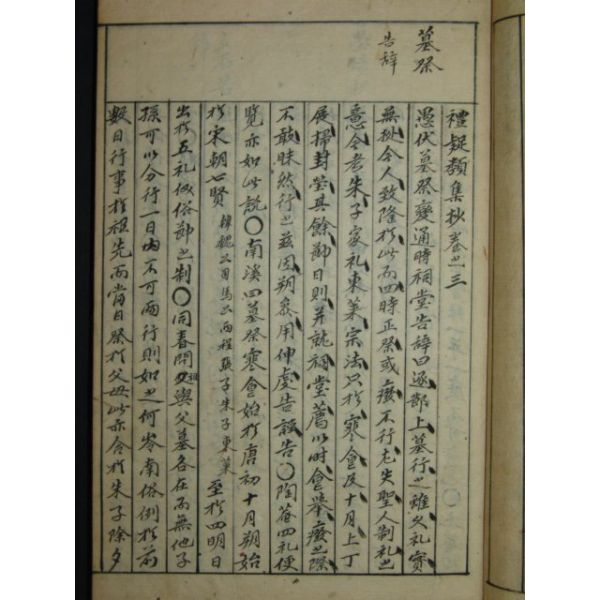 墓祭
告辞
禮疑類集抄卷之三
愚伏墓祭變通時祠堂告辞曰逐節上墓行之雖久礼實
無据令人致隆於此而四時正祭或廢不行尤失聖人制礼之
意今考朱子家礼東萊宗法只於寒食及十月上丁
展掃封塋其餘節日則并就祠堂薦以時食舉廢之際
不敢昧然行之茲因朔參用伸虔告謹告〇陶菴四礼便
覽亦如此說〇南溪曰墓祭寒食始於唐初十月朔始
於宋朝七賢韓魏公司馬公兩程張子朱子東萊至於四明日
出於五礼儀俗節之制〇同春問祖與父墓各在而無他子
孫可以分行一日內不可兩行則如之何岺南俗例於前
數日行事於祖先而當日祭於父母此亦合於朱子除夕